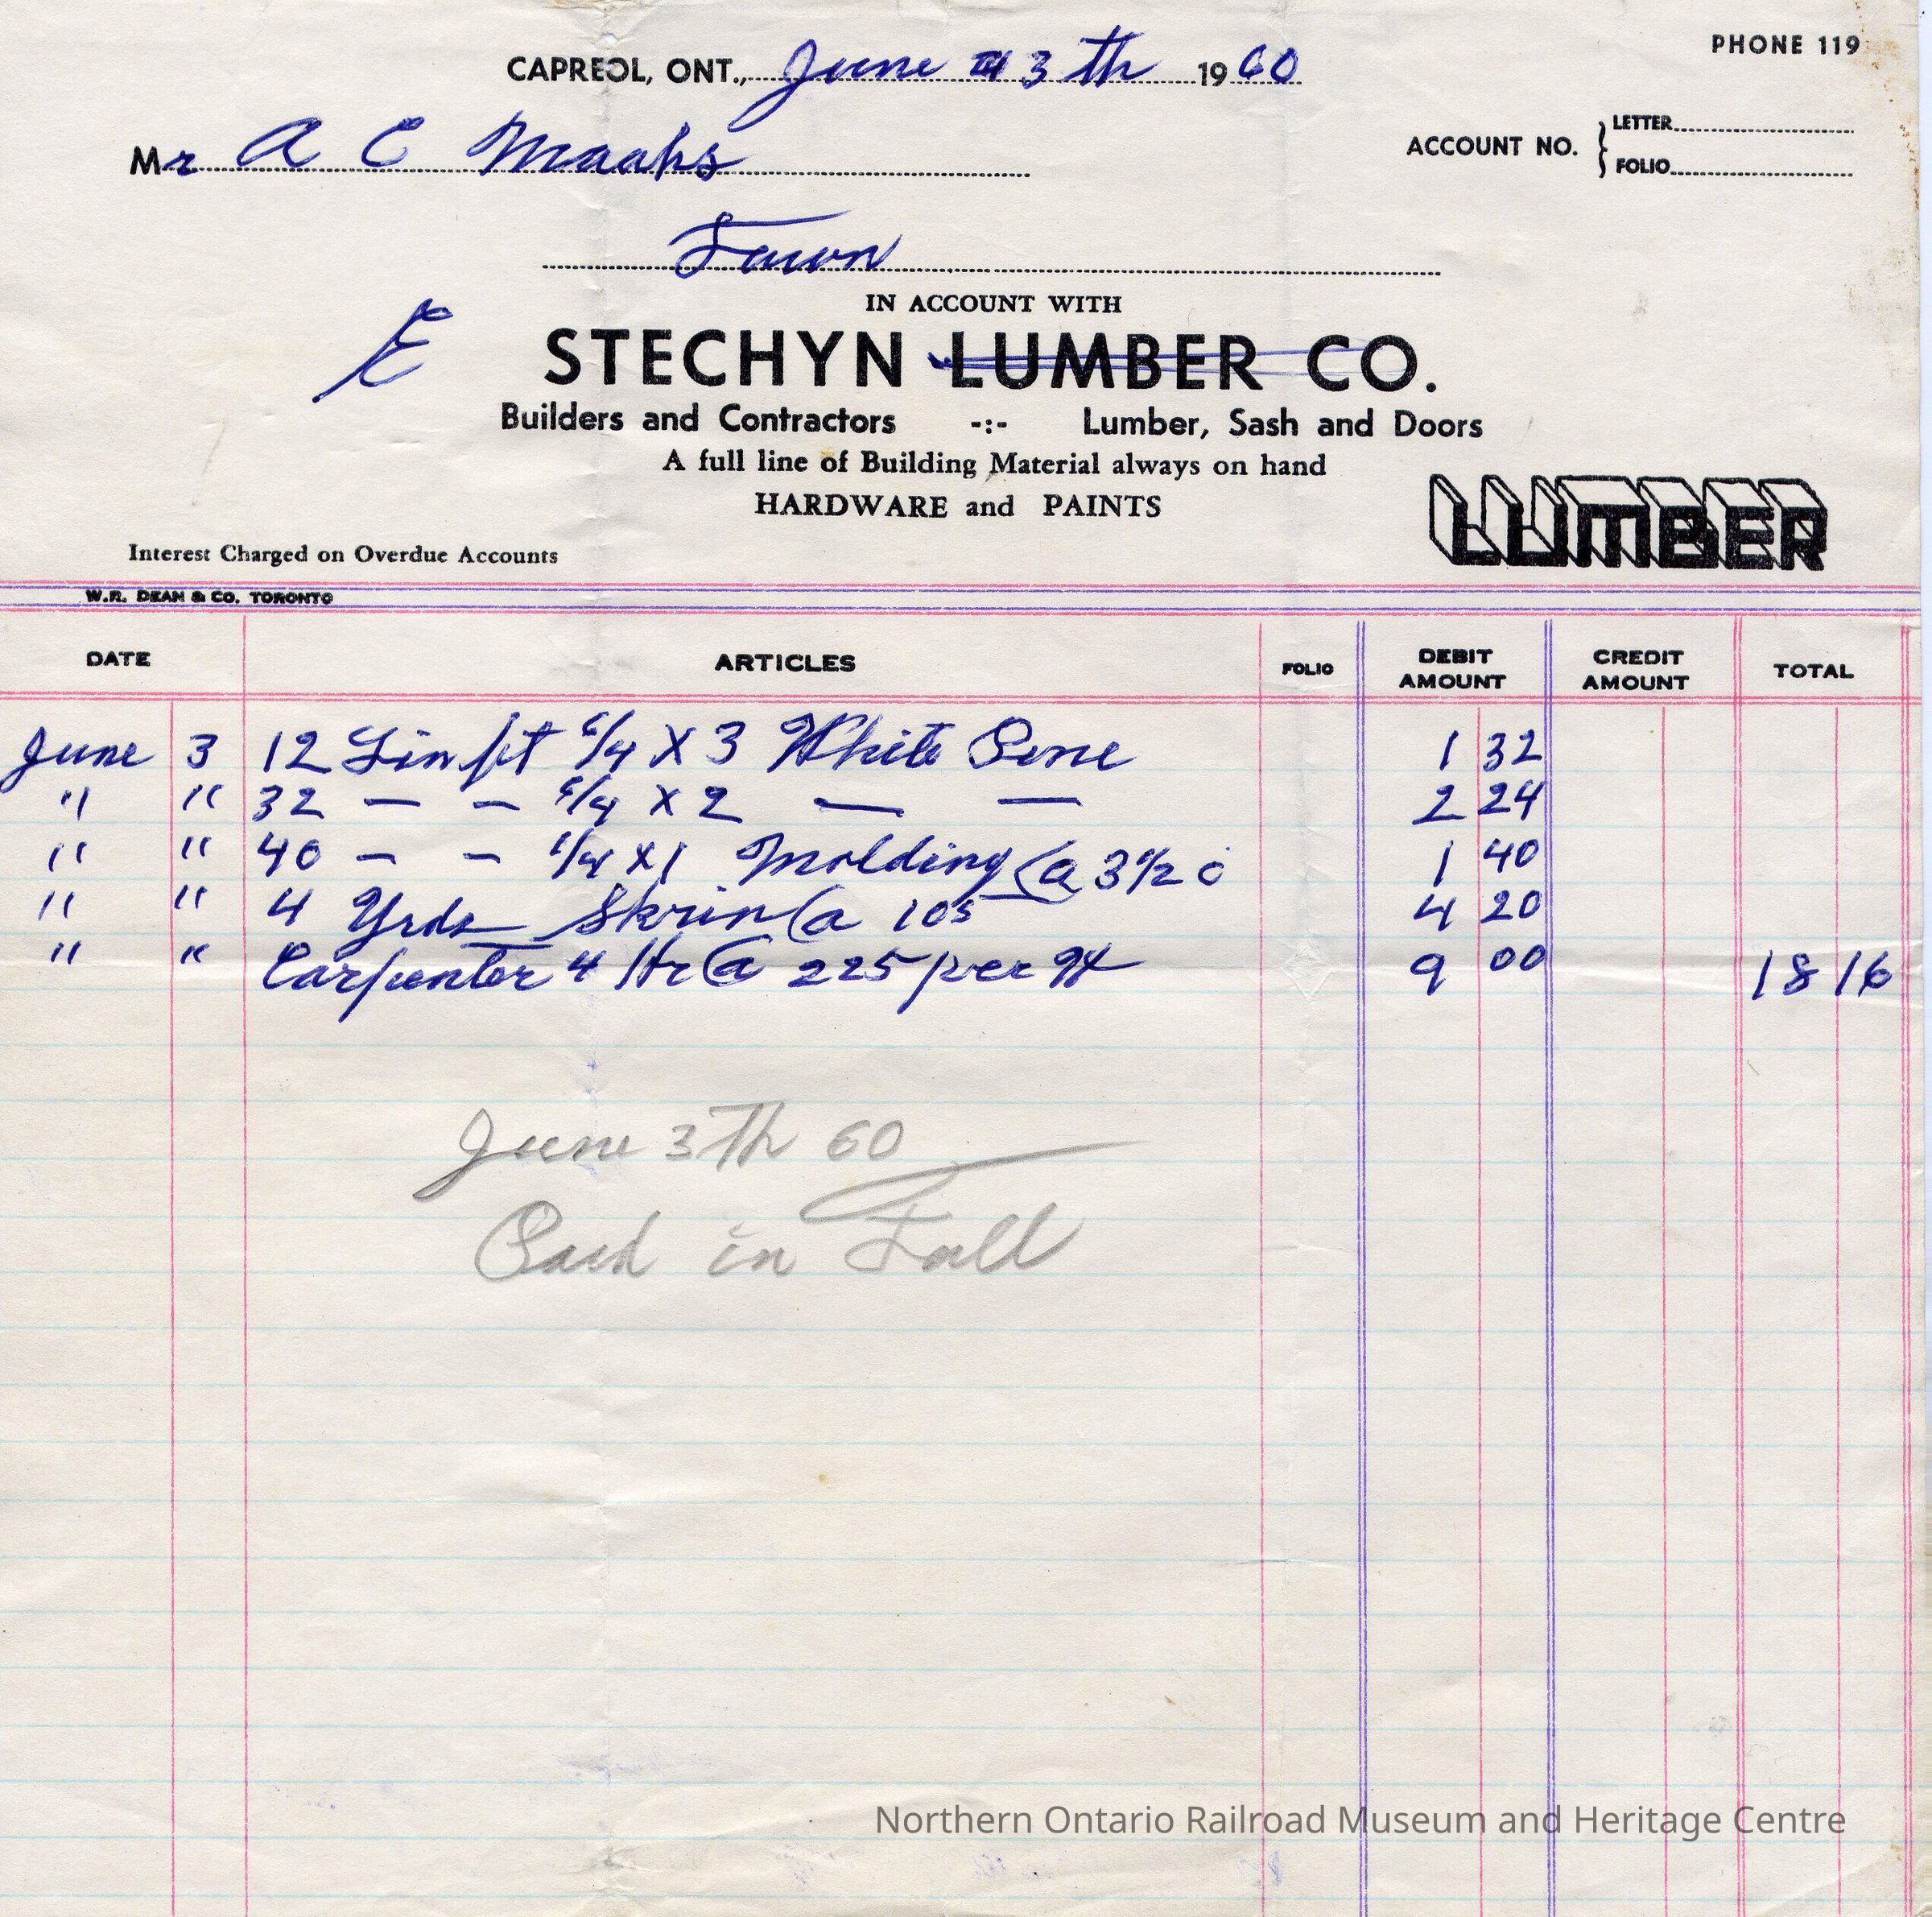 PHONE 119
CAPREOL, ONT., June 3th 1960
ACCOUNT NO. { LETTER
FOLIO
Mr A C Maahs
Town
IN ACCOUNT WITH
E STECHYN LUMBER CO.
Builders and Contractors -:- Lumber, Sash and Doors
A full line of Building Material always on hand
HARDWARE and PAINTS
LUMBER
Interest Charged on Overdue Accounts
W.R. DEAN & CO. TORONTO
DATE ARTICLES FOLIO DEBIT AMOUNT CREDIT AMOUNT TOTAL
June 3 12 Lin fet 5/4 X 3 White Pine 1 32
" " 32 — — 5/4 X 2 — — 2 24
" " 40 — — 1/4 X 1 Molding @ 3 1/2 c 1 40
" " 4 Yrds Skrin @ 105 4 20
" " Carpenter 4 Hr @ 225 per 9 00 18 16
June 3Th 60
Paid in Full
Northern Ontario Railroad Museum and Heritage Centre